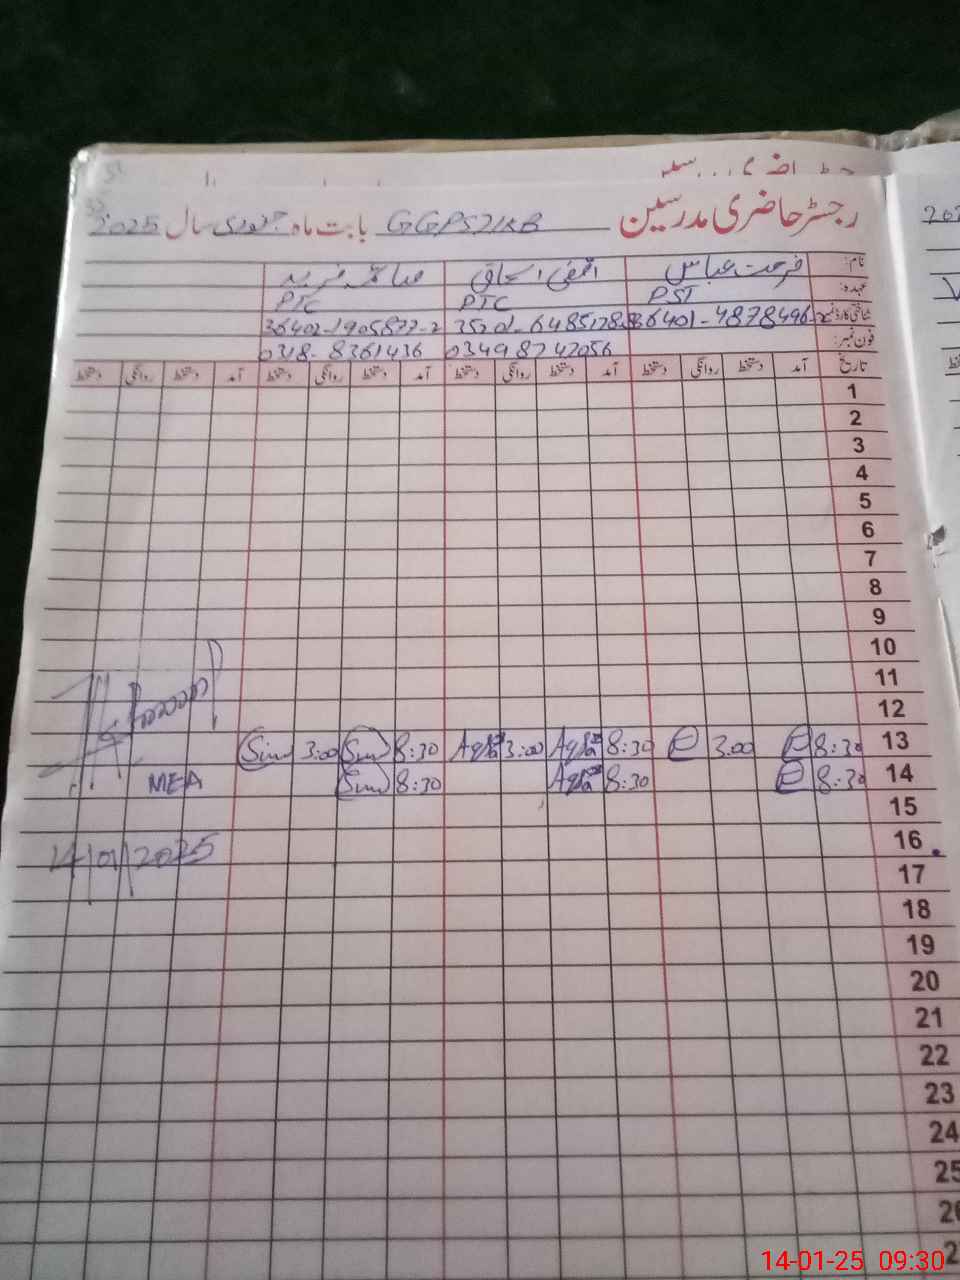 رجسٹر حاضری مدرسین GGPS 21KB بابت ماہ جنوری سال 2025
نام: فرحت عباس اقصیٰ اسحاق صائمہ فرید
عہدہ: PST PTC PTC
شناختی کارڈ نمبر 36401-4878496- 36401-1905877-2
فون نمبر: 03498742056 0318-8361436
تاریخ آمد دستخط روانگی دستخط آمد دستخط روانگی دستخط آمد دستخط روانگی دستخط آمد دستخط روانگی دستخط
1
2
3
4
5
6
7
8
9
10
11
12
13 8:30 3:00 8:30 Aqsa 3:00 Aqsa 8:30 3:00
14 8:30 8:30 Aqsa 8:30
MEA
15
16
14/01/2025
17
18
19
20
21
22
23
24
25
14-01-25 09:30